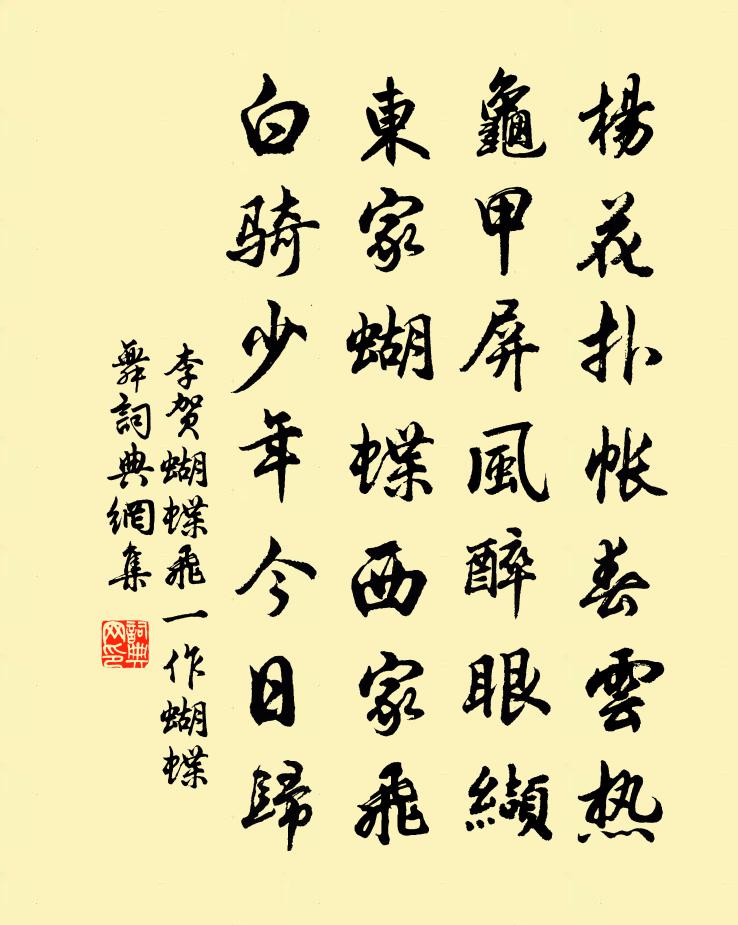 楊花扑帐春雲热
龜甲屏風醉眼纈
東家蝴蝶西家飛
白骑少年今日歸
李贺蝴蝶飛一作蝴蝶
舞詞典網集
詞典
网印